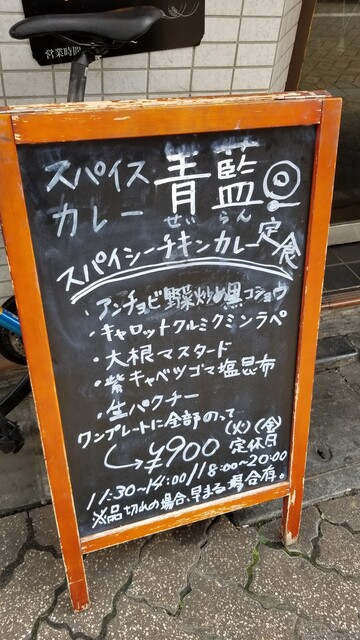 営業時間
スパイス
カレー
青藍
せいらん
スパイシーチキンカレー定食
・アンチョビ野菜炒め黒コショウ
・キャロットクルミクミンラペ
・大根マスタード
・紫キャベツゴマ塩昆布
・生パクチー
ワンプレートに全部のって
¥900
(火)(金)
定休日
11:30~14:00/18:00~20:00
※品切れの場合、早まる場合有。